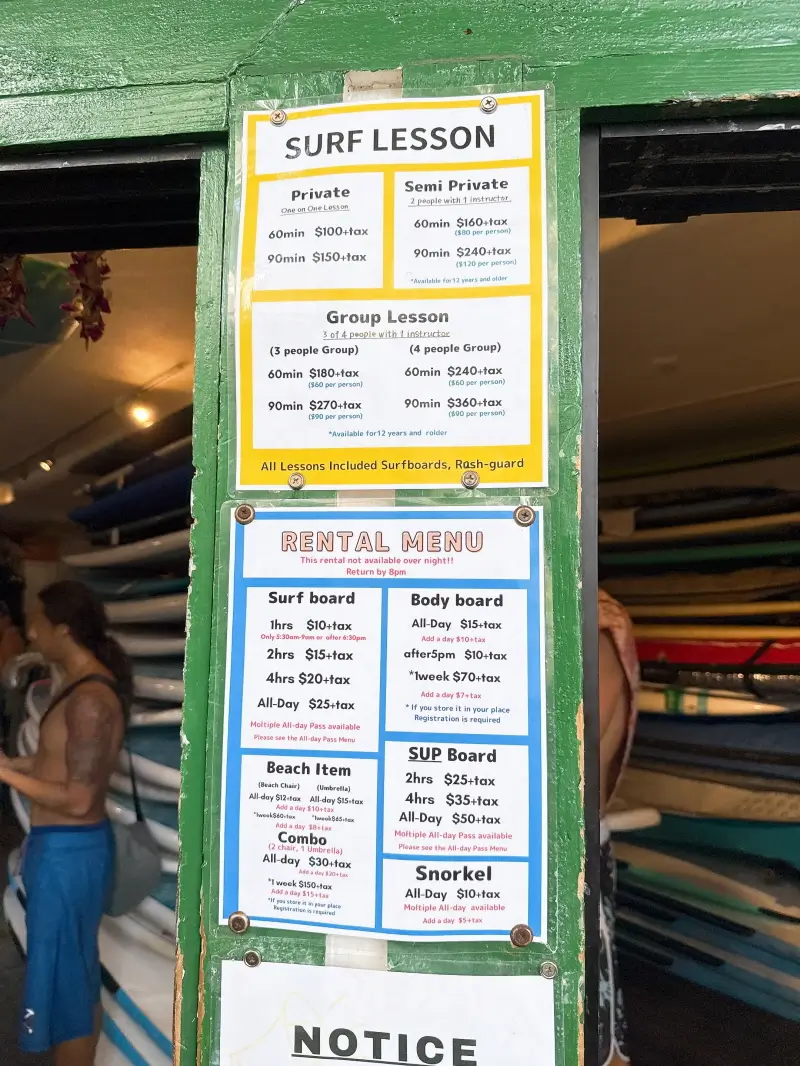 SURF LESSON
Private
One on One Lesson
60min $100+tax
90min $150+tax
Semi Private
2 people with 1 instructor.
60min $160+tax
($80 per person)
90min $240+tax
($120 per person)
*Available for12 years and older
Group Lesson
3 of 4 people with 1 instructor
(3 people Group)
60min $180+tax
($60 per person)
90min $270+tax
($90 per person)
(4 people Group)
60min $240+tax
($60 per person)
90min $360+tax
($90 per person)
*Available for12 years and rolder
All Lessons Included Surfboards, Rash-guard
RENTAL MENU
This rental not available over night!!
Return by 8pm
Surf board
1hrs $10+tax
Only 5:30am-9am or after 6:30pm
2hrs $15+tax
4hrs $20+tax
All-Day $25+tax
Moltiple All-day Pass available
Please see the All-day Pass Menu
Body board
All-Day $15+tax
Add a day $10+tax
after5pm $10+tax
*1week $70+tax
Add a day $7+tax
* If you store it in your place
Registration is required
Beach Item
(Beach Chair) (Umbrella)
All-day $12+tax All-day $15+tax
Add a day $10+tax
*1week$60+tax *1week$65+tax
Add a day $8+tax
Combo
(2 chair, 1 Umbrella)
All-day $30+tax
Add a day $20+tax
*1 week $150+tax
Add a day $15+tax
*If you store it in your place
Registration is required
SUP Board
2hrs $25+tax
4hrs $35+tax
All-Day $50+tax
Moltiple All-day Pass available
Please see the All-day Pass Menu
Snorkel
All-Day $10+tax
Moltiple All-day available
Add a day $5+tax
NOTICE